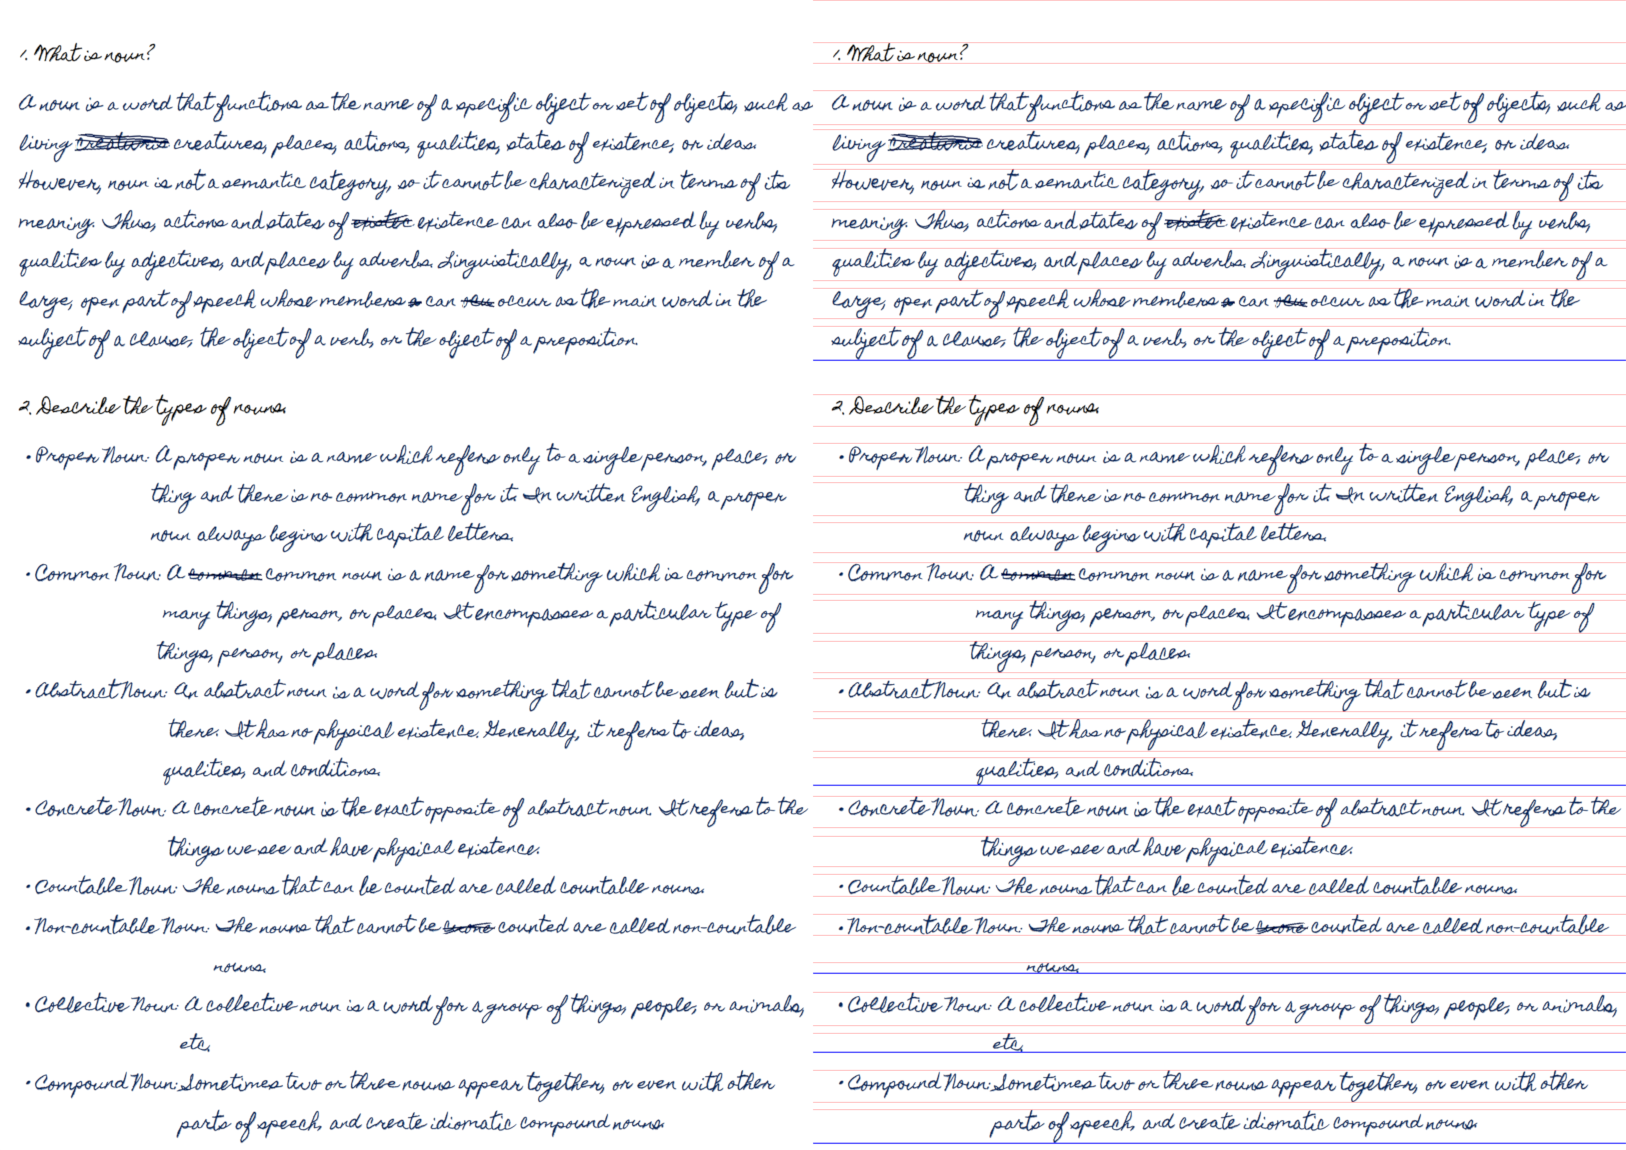 1. What is noun?
A noun is a word that functions as the name of a specific object or set of objects, such as
living creatures, places, actions, qualities, states of existence, or ideas.
However, noun is not a semantic category, so it cannot be characterized in terms of its
meaning. Thus, actions and states of existence can also be expressed by verbs,
qualities by adjectives, and places by adverbs. Linguistically, a noun is a member of a
large, open part of speech whose members can occur as the main word in the
subject of a clause, the object of a verb, or the object of a preposition.
2. Describe the types of nouns.
• Proper Noun: A proper noun is a name which refers only to a single person, place, or
thing and there is no common name for it. In written English, a proper
noun always begins with capital letters.
• Common Noun: A common noun is a name for something which is common for
many things, person, or places. It encompasses a particular type of
things, person, or places.
• Abstract Noun: An abstract noun is a word for something that cannot be seen but is
there. It has no physical existence. Generally, it refers to ideas,
qualities, and conditions.
• Concrete Noun: A concrete noun is the exact opposite of abstract noun. It refers to the
things we see and have physical existence.
• Countable Noun: The nouns that can be counted are called countable nouns.
• Non-countable Noun: The nouns that cannot be counted are called non-countable
nouns.
• Collective Noun: A collective noun is a word for a group of things, people, or animals,
etc.
• Compound Noun: Sometimes two or three nouns appear together, or even with other
parts of speech, and create idiomatic compound nouns.
1. What is noun?
A noun is a word that functions as the name of a specific object or set of objects, such as
living creatures, places, actions, qualities, states of existence, or ideas.
However, noun is not a semantic category, so it cannot be characterized in terms of its
meaning. Thus, actions and states of existence can also be expressed by verbs,
qualities by adjectives, and places by adverbs. Linguistically, a noun is a member of a
large, open part of speech whose members can occur as the main word in the
subject of a clause, the object of a verb, or the object of a preposition.
2. Describe the types of nouns.
• Proper Noun: A proper noun is a name which refers only to a single person, place, or
thing and there is no common name for it. In written English, a proper
noun always begins with capital letters.
• Common Noun: A common noun is a name for something which is common for
many things, person, or places. It encompasses a particular type of
things, person, or places.
• Abstract Noun: An abstract noun is a word for something that cannot be seen but is
there. It has no physical existence. Generally, it refers to ideas,
qualities, and conditions.
• Concrete Noun: A concrete noun is the exact opposite of abstract noun. It refers to the
things we see and have physical existence.
• Countable Noun: The nouns that can be counted are called countable nouns.
• Non-countable Noun: The nouns that cannot be counted are called non-countable
nouns.
• Collective Noun: A collective noun is a word for a group of things, people, or animals,
etc.
• Compound Noun: Sometimes two or three nouns appear together, or even with other
parts of speech, and create idiomatic compound nouns.